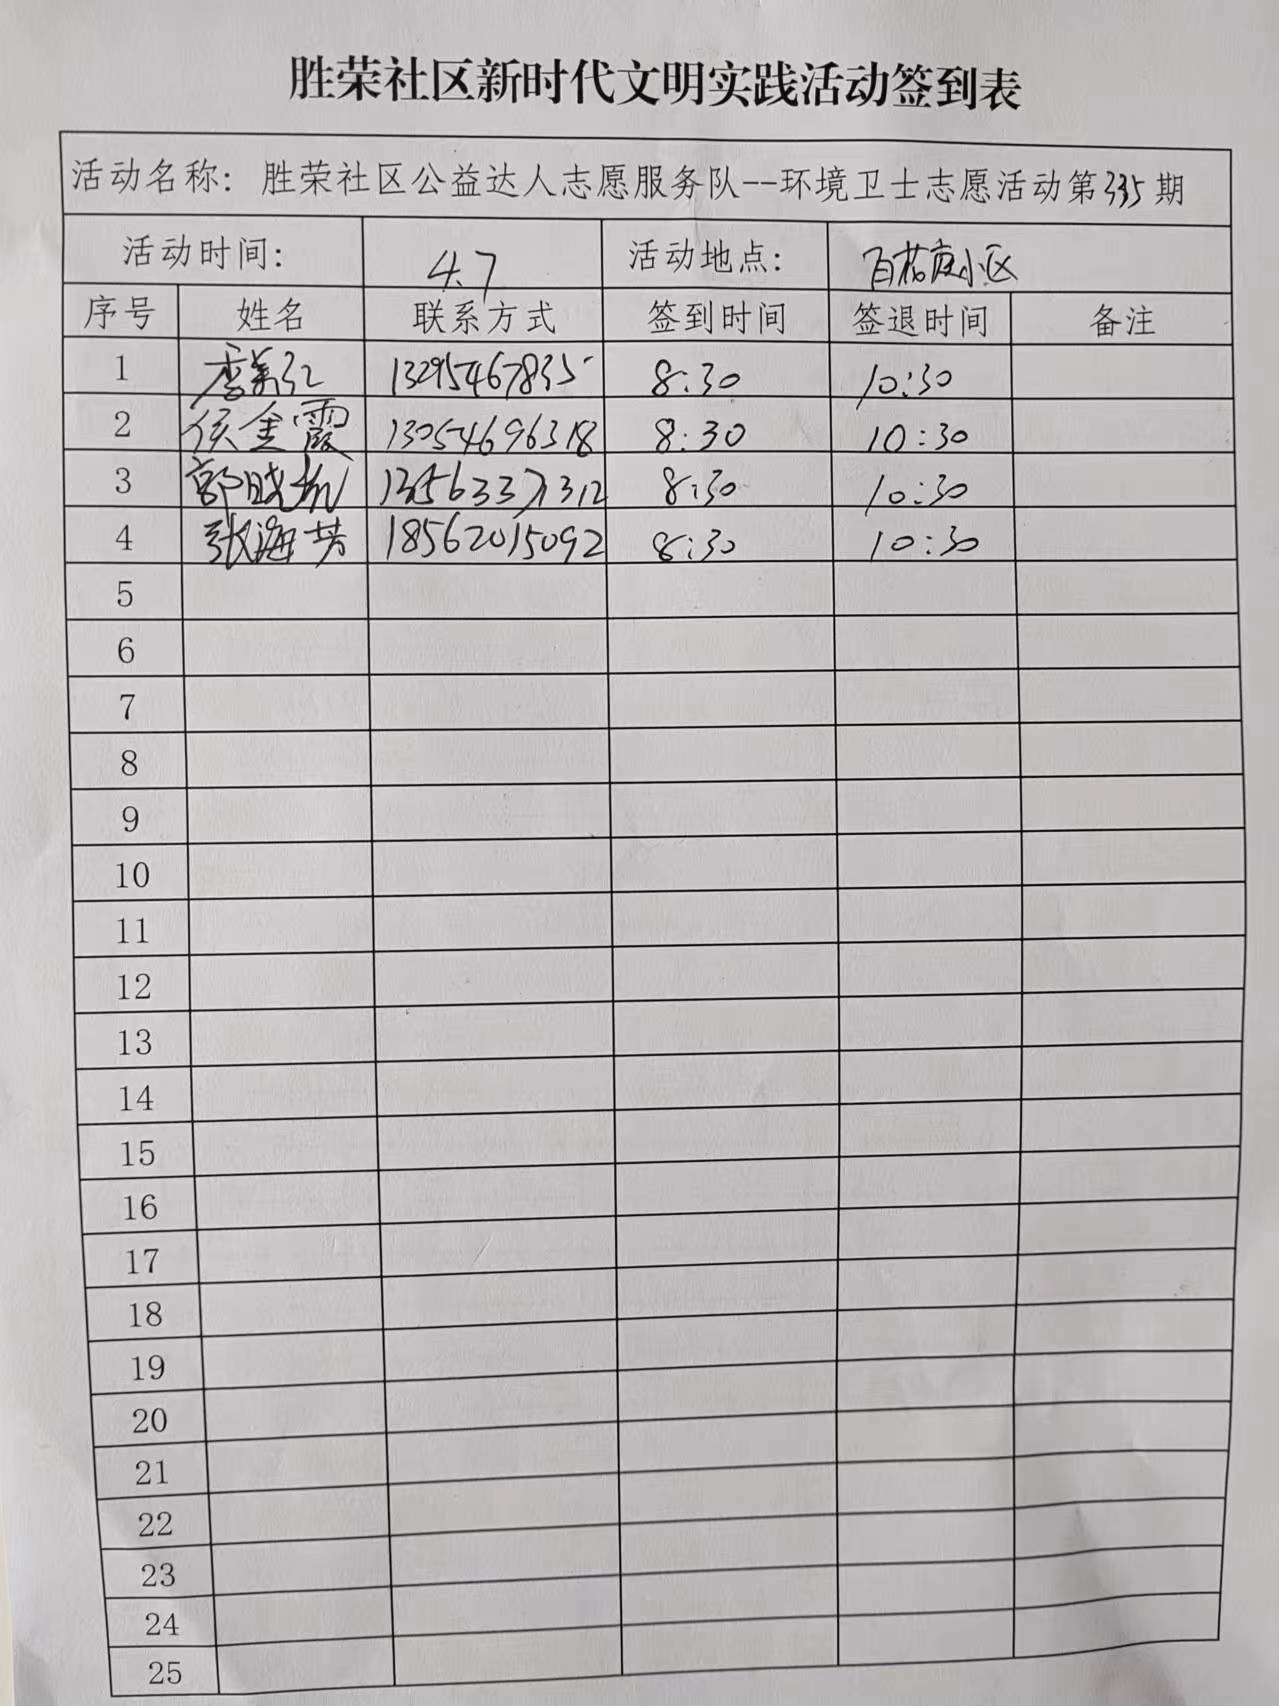 胜荣社区新时代文明实践活动签到表
活动名称：胜荣社区公益达人志愿服务队--环境卫士志愿活动第335期
活动时间： 4.7 活动地点： 百花园小区
序号 姓名 联系方式 签到时间 签退时间 备注
1 李美红 13295467835 8:30 10:30
2 侯金霞 13054696318 8:30 10:30
3 郭晓 13563371312 8:30 10:30
4 张海芳 18562015092 8:30 10:30
5
6
7
8
9
10
11
12
13
14
15
16
17
18
19
20
21
22
23
24
25